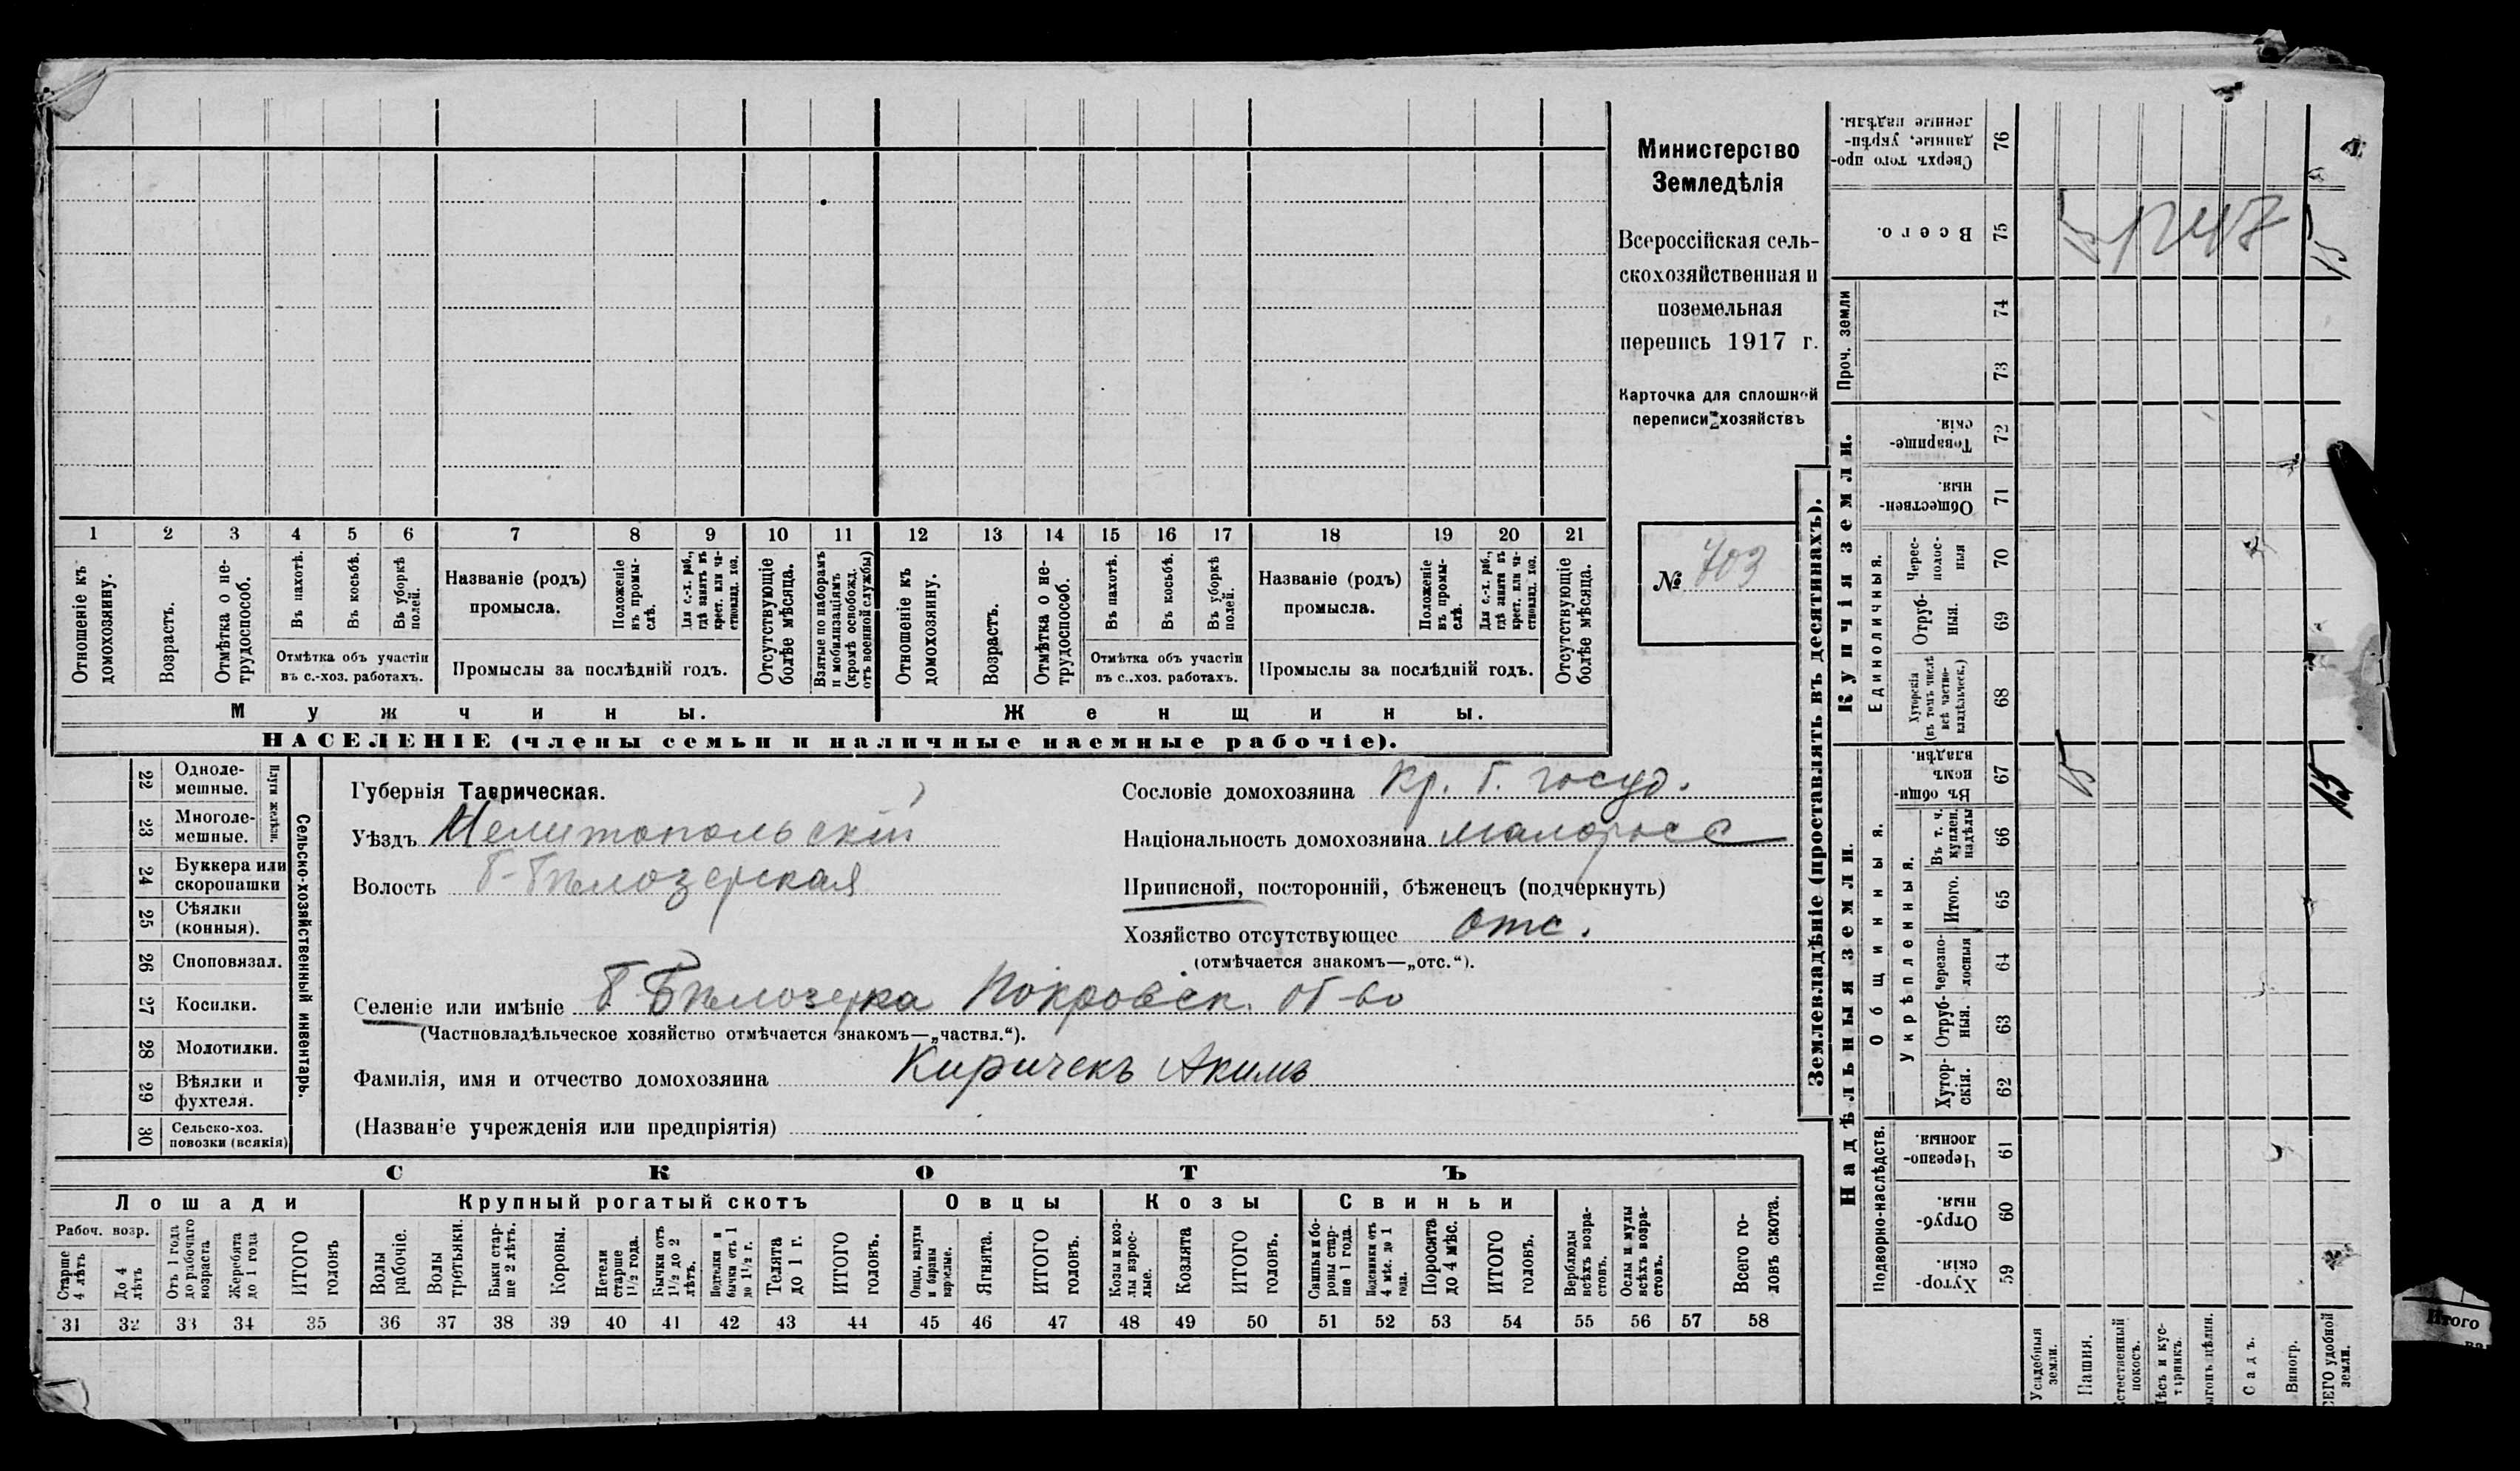 Министерство
Земледѣлія
Всероссійская сель-
скохозяйственная и
поземельная
перепись 1917 г.
Карточка для сплошной
переписи хозяйствъ
№ 703
1 2 3 4 5 6 7 8 9 10 11 12 13 14 15 16 17 18 19 20 21
Отношеніе къ домохозяину.
Возрастъ.
Отмѣтка о не-трудоспособ.
Въ пахотѣ.
Въ косьбѣ.
Въ уборкѣ полей.
Отмѣтка объ участіи
въ с.-хоз. работахъ.
Названіе (родъ)
промысла.
Положеніе въ промы-слѣ.
Для с.-х. раб., гдѣ занятъ въ крест. или ча-стновлад. хоз.
Промыслы за послѣдній годъ.
Отсутствующіе болѣе мѣсяца.
Взятые по наборамъ и мобилизаціямъ (кромѣ освобожд. отъ военной службы)
Отношеніе къ домохозяину.
Возрастъ.
Отмѣтка о не-трудоспособ.
Въ пахотѣ.
Въ косьбѣ.
Въ уборкѣ полей.
Отмѣтка объ участіи
въ с.-хоз. работахъ.
Названіе (родъ)
промысла.
Положеніе въ промы-слѣ.
Для с.-х. раб., гдѣ занята въ крест. или ча-стновлад. хоз.
Промыслы за послѣдній годъ.
Отсутствующіе болѣе мѣсяца.
Мужчины. Женщины.
НАСЕЛЕНІЕ (члены семьи и наличные наемные рабочіе).
Сельско-хозяйственный инвентарь.
Плуги желѣзн.
22 Одноле-мешные.
23 Многоле-мешные.
24 Буккера или скоропашки
25 Сѣялки (конныя).
26 Сноповязал.
27 Косилки.
28 Молотилки.
29 Вѣялки и фухтеля.
30 Сельско-хоз. повозки (всякія)
Губернія Таврическая.
Уѣздъ Мелитопольскій
Волость Б-Бѣлозерская
Сословіе домохозяина Кр. б. госуд.
Національность домохозяина малоросс
Приписной, посторонній, бѣженецъ (подчеркнуть)
Хозяйство отсутствующее отс.
(отмѣчается знакомъ—„отс.“).
Селеніе или имѣніе Б Бѣлозерка Покровск. об-во
(Частновладѣльческое хозяйство отмѣчается знакомъ—„частвл.“).
Фамилія, имя и отчество домохозяина Киричекъ Акимъ
(Названіе учрежденія или предпріятія)
СКОТЪ
Лошади Крупный рогатый скотъ Овцы Козы Свиньи
Рабоч. возр.
Старше 4 лѣтъ
До 4 лѣтъ
Отъ 1 года до рабочаго возраста
Жеребята до 1 года
ИТОГО головъ
Волы рабочіе.
Волы третьяки.
Быки стар-ше 2 лѣтъ.
Коровы.
Нетели старше 1½ года.
Бычки отъ 1½ до 2 лѣтъ.
Подтелки и бычки отъ 1 до 1½ г.
Телята до 1 г.
ИТОГО головъ.
Овцы, валухи и бараны взрослые.
Ягнята.
ИТОГО головъ.
Козы и коз-лы взрос-лые.
Козлята
ИТОГО головъ.
Свиньи и бо-роны стар-ше 1 года.
Подсвинки отъ 4 мѣс. до 1 года.
Поросята до 4 мѣс.
ИТОГО головъ.
Верблюды всѣхъ возра-стовъ.
Ослы и мулы всѣхъ возра-стовъ.
Всего го-ловъ скота.
31 32 33 34 35 36 37 38 39 40 41 42 43 44 45 46 47 48 49 50 51 52 53 54 55 56 57 58
Землевладѣніе (проставлять въ десятинахъ).
Надѣльныя земли.
Подворно-наслѣдств.
Хутор-скія. 59
Отруб-ныя. 60
Черезпо-лосныя 61
Общинныя.
Укрѣпленныя.
Хутор-скія. 62
Отруб-ныя. 63
черезпо-лосныя 64
Итого. 65
Въ т. ч. куплен. надѣлы 66
Въ общи-номъ владѣн. 67
Купчія земли.
Единоличныя.
Хуторскія (въ томъ числѣ всѣ частно-владѣльческ.) 68
Отруб-ныя. 69
Черес-полос-ныя 70
Обществен-ныя. 71
Товарище-скія. 72
Проч. земли
73
74
Всего. 75
Сверхъ того про-данные, укрѣп-ленные надѣлы. 76
Усадебныя земли.
Пашня.
Сад ъ.
Виногр.
Итого